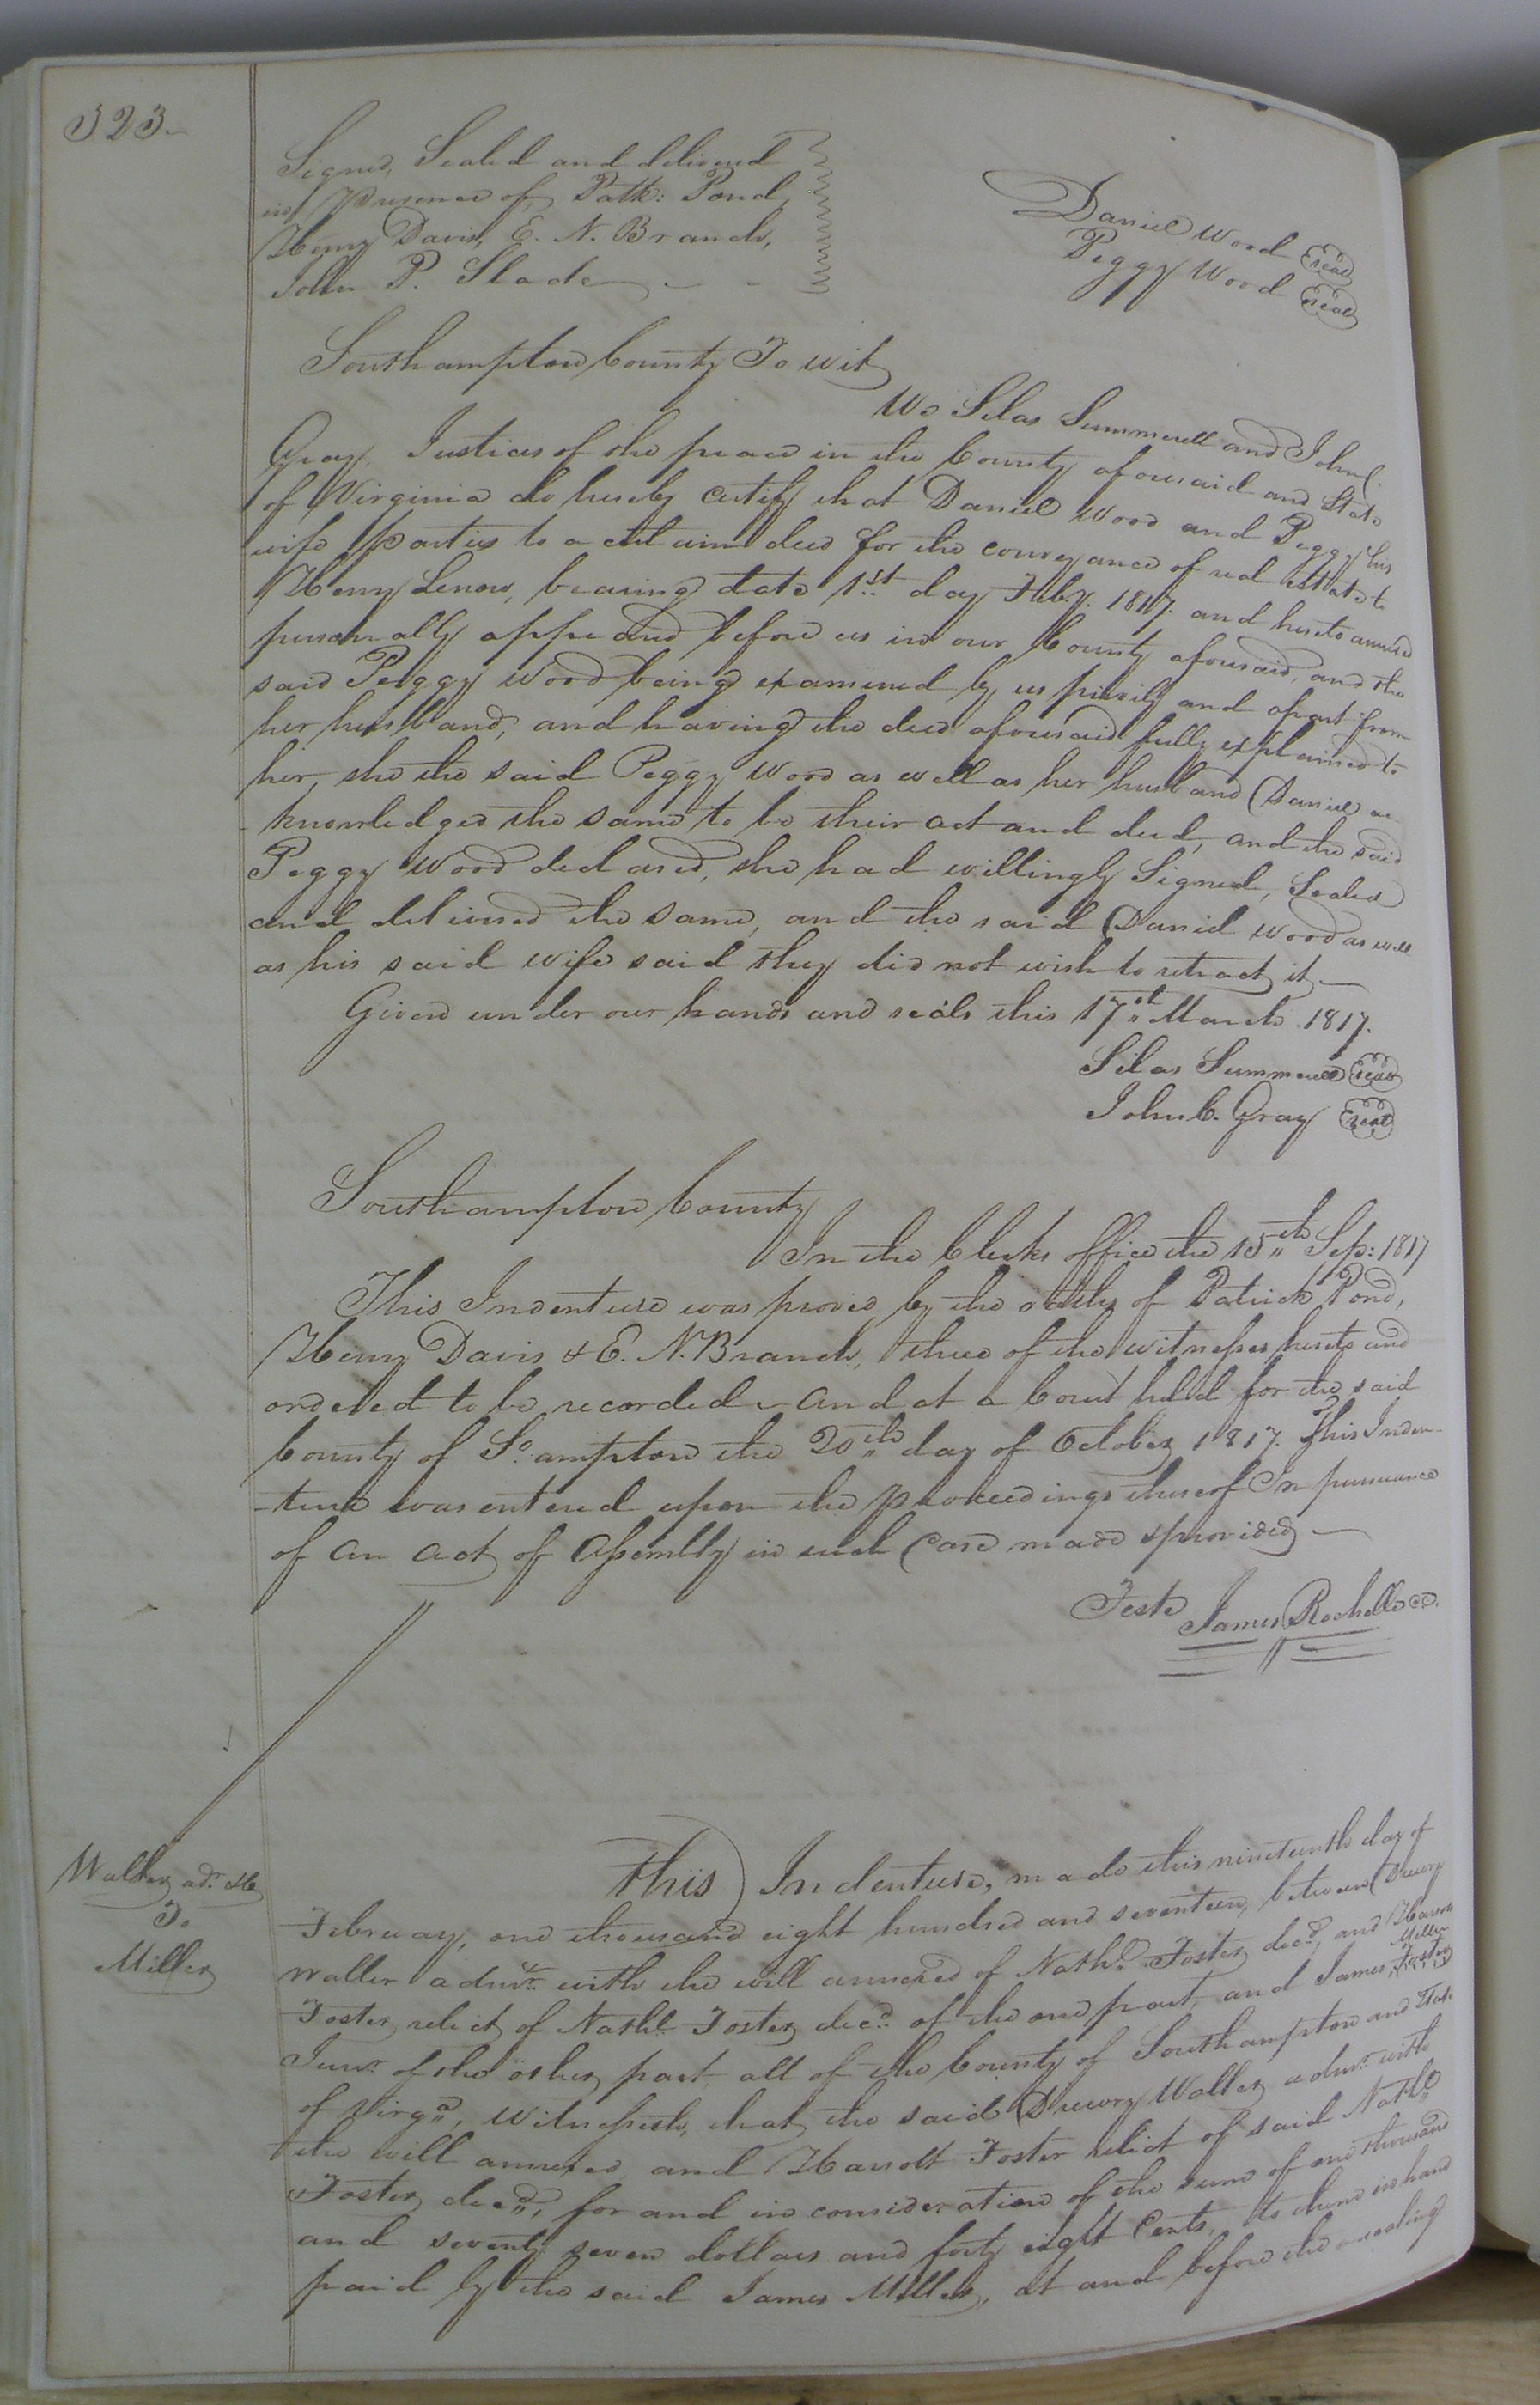 323
Signed, Sealed and delivered
in presence of, Patk: Pond,
Henry Davis, E. N. Branch,
John P. Slade
Daniel Wood Seal
Peggy Wood Seal
Southampton County To wit
We Silas Summerell and John C.
Gray, Justices of the peace in the County aforesaid and State
of Virginia do hereby certify that Daniel Wood and Peggy his
wife parties to a certain deed for the conveyance of real estate to
Henry Lenow, bearing date 1st day Feby. 1817. and hereto annexed
personally appeared before us in our County aforesaid, and the
said Peggy Wood being examined by us privily and apart from
her husband, and having the deed aforesaid fully explained to
her, she the said Peggy Wood as well as her husband Daniel ac-
knowledged the same to be their act and deed, and the said
Peggy Wood declared, she had willingly Signed, Sealed
and delivered the same, and the said Daniel Wood as well
as his said wife said they did not wish to retract it
Given under our hands and seals this 17th March 1817.
Silas Summerell Seal
John C. Gray Seal
Southampton County
In the Clerks office the 15th Sep: 1817
This Indenture was proved by the oaths of Patrick Pond,
Henry Davis & E. N. Branch, three of the witnesses hereto and
ordered to be recorded - and at a Court held for the said
County of So.ampton the 20th day of October 1817. This Inden-
-ture was entered upon the proceedings thereof In pursuance
of an act of Assembly in such Case made & provided
Teste James Rochelle CC.
Waller adr. &c
To
Miller
This Indenture, made this nineteenth day of
February, one thousand eight hundred and seventeen, between Drewry
Waller admr. with the will annexed of Nathl. Foster decd, and Harrott
Foster relict of Nathl. Foster decd. of the one part, and James Miller Foster
Junr. of the other part, all of the County of Southampton and State
of Virga, Witnesseth, that the said Drewry Waller admr. with
the will annexed, and Harrott Foster relict of said Nathl
Foster decd, for and in consideration of the sum of one thousand
and seventy seven dollars and forty eight Cents, to them in hand
paid by the said James Miller, at and before the ensealing